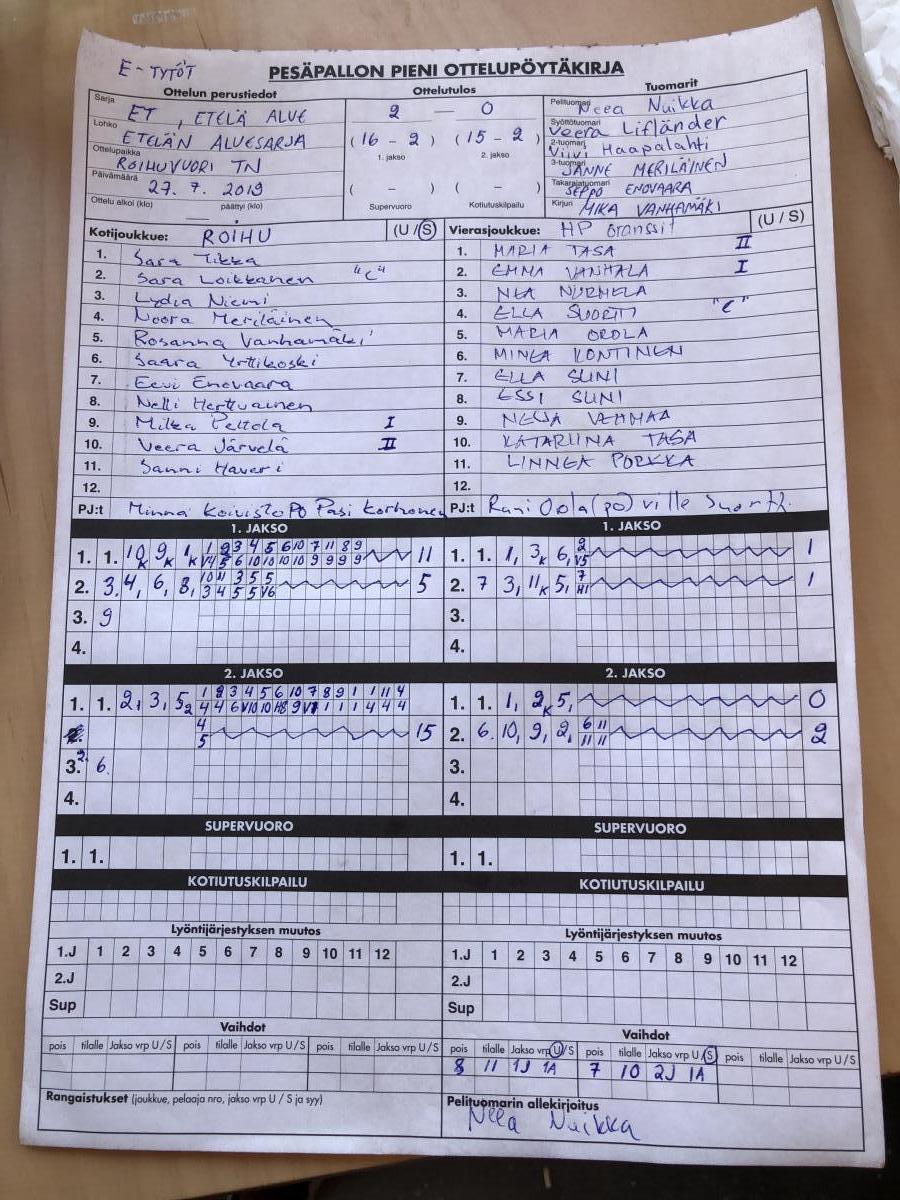 E-TYTÖT
PESÄPALLON PIENI OTTELUPÖYTÄKIRJA
Ottelun perustiedot Ottelutulos Tuomarit
Sarja ET, ETELÄ ALUE
Lohko ETELÄN ALUESARJA
Ottelupaikka ROIHUVUORI TN
Päivämäärä 27. 7. 2019
Ottelu alkoi (klo) päättyi (klo)
2 — 0
(16 - 2) (15 - 2)
1. jakso 2. jakso
( - ) ( - )
Supervuoro Kotiutuskilpailu
Pelituomari Neea Nuikka
Syöttötuomari Veera Lifländer
2-tuomari Viivi Haapalahti
3-tuomari SANNE MERILÄINEN
Takarajatuomari SEPPO ENOVAARA
Kirjuri MIKA VANHAMÄKI
Kotijoukkue: ROIHU (U/S)
1. Sara Tikka
2. Sara Loikkanen "C"
3. Lydia Niemi
4. Noora Meriläinen
5. Rosanna Vanhamäki
6. Saara Yrttikoski
7. Eevi Enovaara
8. Nelli Herttuainen
9. Milka Peltola I
10. Veera Järvelä II
11. Sanni Haveri
12.
PJ:t Minna Koivisto PO Pasi Korhonen
Vierasjoukkue: HP Oranssit (U/S)
1. MARIA TASA II
2. EMMA VANHALA I
3. NEA NURMELA
4. ELLA SUORTTI "C"
5. MARIA OROLA
6. MINEA KONTINEN
7. ELLA SUNI
8. ESSI SUNI
9. NELLA VEHMAA
10. KATARIINA TASA
11. LINNEA PORKKA
12.
PJ:t (PO) Ville
1. JAKSO 1. JAKSO
1. 1. 10 K 9 K 1 K 1 2 3 4 5 6 10 7 11 8 9 11
V4 5 6 10 10 10 10 9 9 9 9
2. 3. 4, 6, 8, 10 11 3 5 5 5
3 4 5 5 V6
3. 9
4.
1. 1. 1, 3 K 6, 2 1
V5
2. 7 3, 11 K 5, 7 1
H1
3.
4.
2. JAKSO 2. JAKSO
1. 1. 2, 3, 5 2 1 2 3 4 5 6 10 7 8 9 1 1 11 4
4 4 6 V10 10 H8 9 V1 1 1 1 4 4 4
4 15
5
3. 2. 6.
4.
1. 1. 1, 2 K 5, 0
2. 6. 10, 9, 2, 6 11 2
11 11
3.
4.
SUPERVUORO SUPERVUORO
1. 1. 1. 1.
KOTIUTUSKILPAILU KOTIUTUSKILPAILU
Lyöntijärjestyksen muutos Lyöntijärjestyksen muutos
1.J 1 2 3 4 5 6 7 8 9 10 11 12 1.J 1 2 3 4 5 6 7 8 9 10 11 12
2.J 2.J
Sup Sup
Vaihdot Vaihdot
pois tilalle Jakso vrp U/S pois tilalle Jakso vrp U/S pois tilalle Jakso vrp U/S
pois tilalle Jakso vrp U/S pois tilalle Jakso vrp U/S pois tilalle Jakso vrp U/S
8 11 1J 1A 7 10 2J 1A
Rangaistukset (joukkue, pelaaja nro, jakso vrp U / S ja syy)
Pelituomarin allekirjoitus
Neea Nuikka